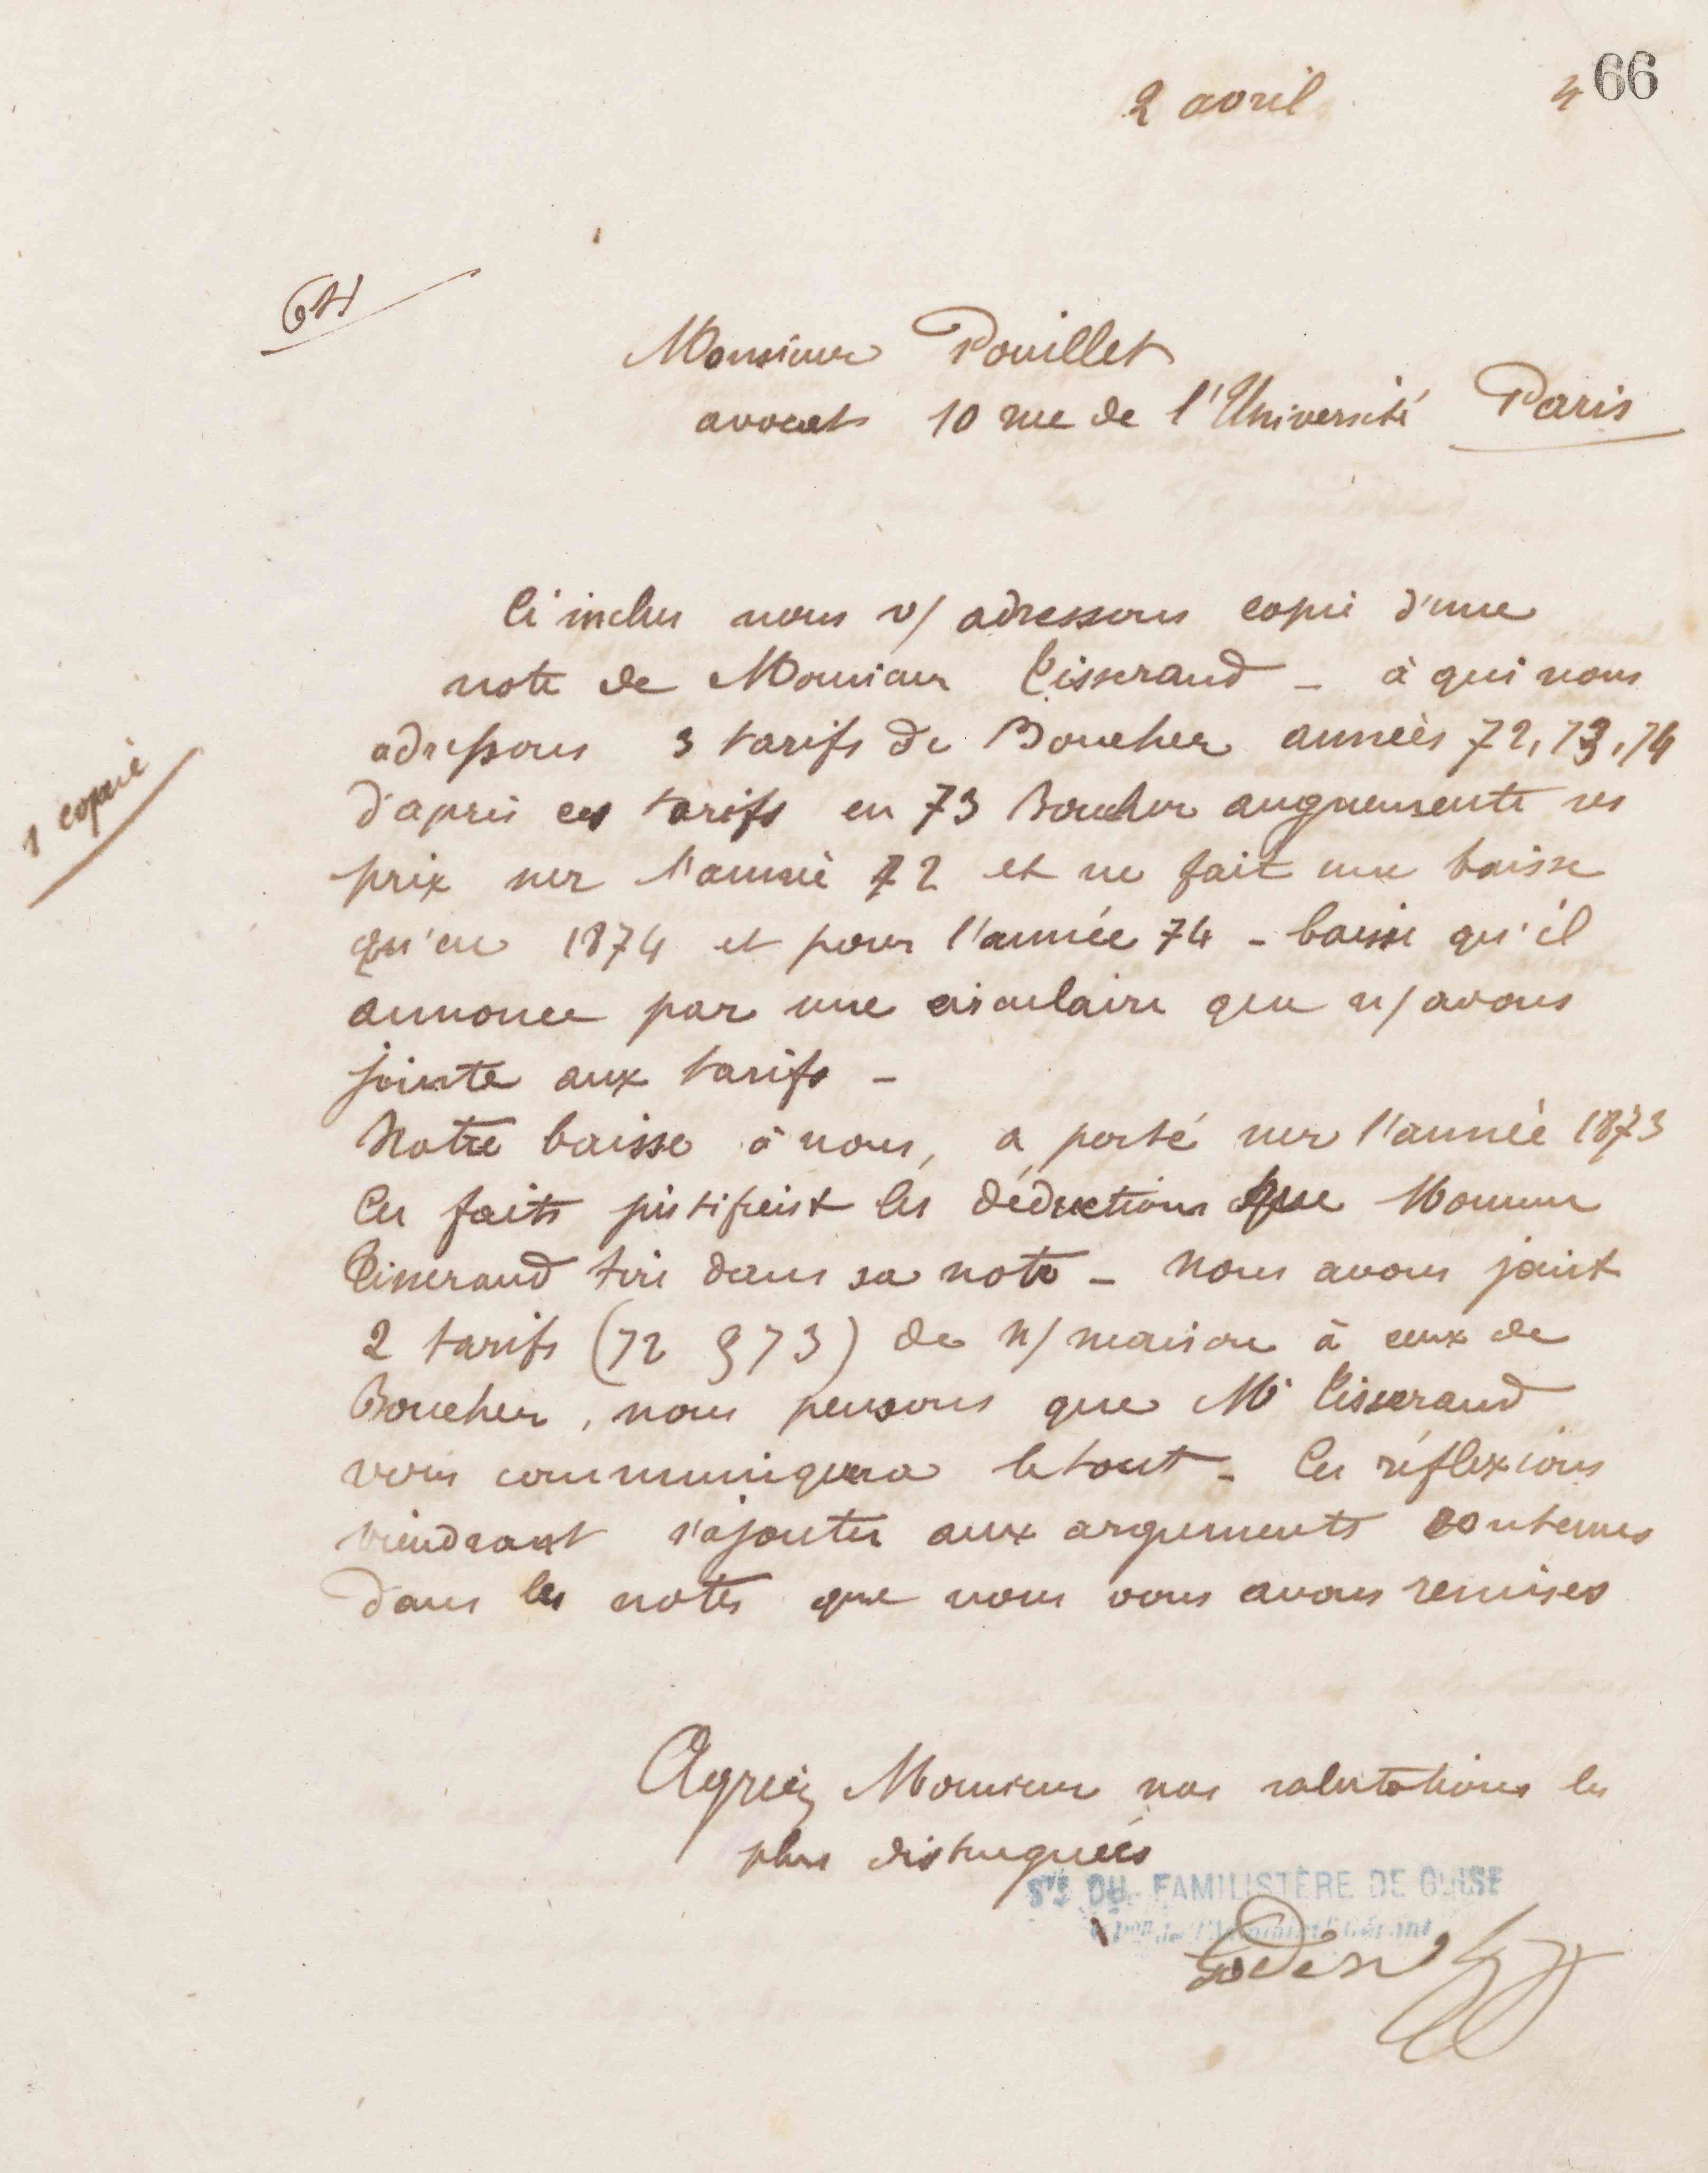 2 avril 4 66
Monsieur Pouillet
avocat 10 rue de l'Université Paris
Ci inclus nous v/ adressons copie d'une
note de Monsieur Tisserand _ à qui nous
adressons 3 tarifs de Boucher années 72, 73, 74
1 copie
d'après ces tarifs en 73 Boucher augmente ses
prix sur l'année 72 et ne fait une baisse
qu'en 1874 et pour l'année 74 _ baisse qu'il
annonce par une circulaire que n/ avons
jointe aux tarifs _
Notre baisse à nous, a porté sur l'année 1873
Ces faits justifient les déductions que Monsieur
Tisserand tire dans sa note _ Nous avons joint
2 tarifs (72 & 73) de n/ maison à ceux de
Boucher, nous pensons que Mr Tisserand
vous communiquera le tout _ Ces réflexions
viendront s'ajouter aux arguments contenus
dans les notes que nous vous avons remises
Agréez Monsieur nos salutations les
plus distinguées
Sté DU FAMILISTÈRE DE GUISE
Godin